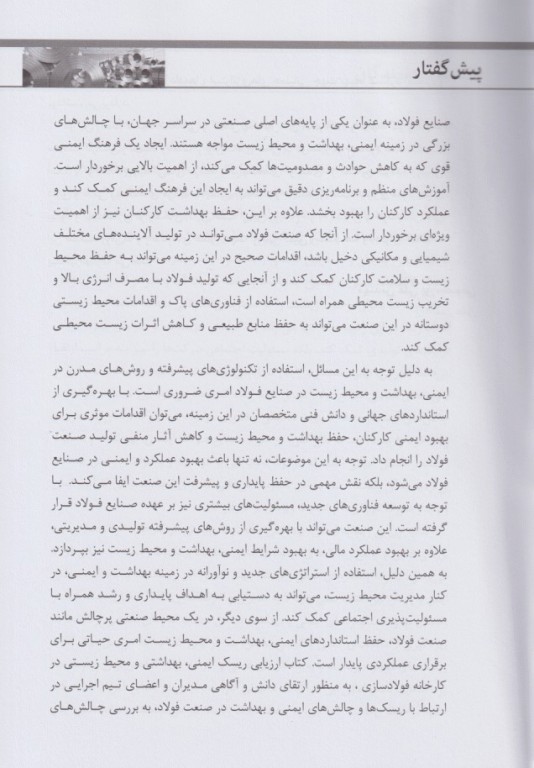 پیش گفتار
صنایع فولاد، به عنوان یکی از پایه‌های اصلی صنعتی در سراسر جهان، با چالش‌های
بزرگی در زمینه ایمنی، بهداشت و محیط زیست مواجه هستند. ایجاد یک فرهنگ ایمنی
قوی که به کاهش حوادث و مصدومیت‌ها کمک می‌کند، از اهمیت بالایی برخوردار است.
آموزش‌های منظم و برنامه‌ریزی دقیق می‌تواند به ایجاد این فرهنگ ایمنی کمک کند و
عملکرد کارکنان را بهبود بخشد. علاوه بر این، حفظ بهداشت کارکنان نیز از اهمیت
ویژه‌ای برخوردار است. از آنجا که صنعت فولاد می‌تواند در تولید آلاینده‌های مختلف
شیمیایی و مکانیکی دخیل باشد، اقدامات صحیح در این زمینه می‌تواند به حفظ محیط
زیست و سلامت کارکنان کمک کند و از آنجایی که تولید فولاد با مصرف انرژی بالا و
تخریب زیست محیطی همراه است، استفاده از فناوری‌های پاک و اقدامات محیط زیستی
دوستانه در این صنعت می‌تواند به حفظ منابع طبیعی و کاهش اثرات زیست محیطی
کمک کند.
به دلیل توجه به این مسائل، استفاده از تکنولوژی‌های پیشرفته و روش‌های مدرن در
ایمنی، بهداشت و محیط زیست در صنایع فولاد امری ضروری است. با بهره‌گیری از
استانداردهای جهانی و دانش فنی متخصصان در این زمینه، می‌توان اقدامات موثری برای
بهبود ایمنی کارکنان، حفظ بهداشت و محیط زیست و کاهش آثار منفی تولید صنعت
فولاد را انجام داد. توجه به این موضوعات، نه تنها باعث بهبود عملکرد و ایمنی در صنایع
فولاد می‌شود، بلکه نقش مهمی در حفظ پایداری و پیشرفت این صنعت ایفا می‌کند. با
توجه به توسعه فناوری‌های جدید، مسئولیت‌های بیشتری نیز بر عهده صنایع فولاد قرار
گرفته است. این صنعت می‌تواند با بهره‌گیری از روش‌های پیشرفته تولیدی و مدیریتی،
علاوه بر بهبود عملکرد مالی، به بهبود شرایط ایمنی، بهداشت و محیط زیست نیز بپردازد.
به همین دلیل، استفاده از استراتژی‌های جدید و نوآورانه در زمینه بهداشت و ایمنی، در
کنار مدیریت محیط زیست، می‌تواند به دستیابی به اهداف پایداری و رشد همراه با
مسئولیت‌پذیری اجتماعی کمک کند. از سوی دیگر، در یک محیط صنعتی پرچالش مانند
صنعت فولاد، حفظ استانداردهای ایمنی، بهداشت و محیط زیست امری حیاتی برای
برقراری عملکردی پایدار است. کتاب ارزیابی ریسک ایمنی، بهداشتی و محیط زیستی در
کارخانه فولادسازی ، به منظور ارتقای دانش و آگاهی مدیران و اعضای تیم اجرایی در
ارتباط با ریسک‌ها و چالش‌های ایمنی و بهداشت در صنعت فولاد، به بررسی چالش‌های